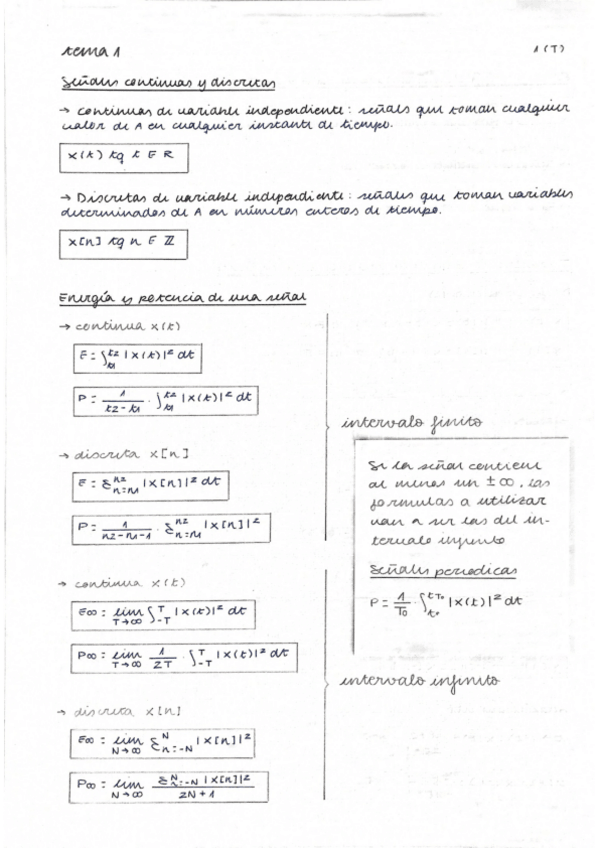 tema 1
1(T)
Señales continuas y discretas
→ continuas de variable independiente: señals que toman cualquier
valor de A en cualquier instante de tiempo.
x(t) tq t E R
→ Discretas de variable independiente: señales que toman variables
determinados de A en números enteros de tiempo.
x[n] tq n E ℤ
Energía y potencia de una señal
→ continua x(t)
E = ∫_t1^t2 |x(t)|² dt
P = 1/(t2-t1) · ∫_t1^t2 |x(t)|² dt
→ discreta x[n]
E = Σ_n=n1^n2 |x[n]|² dt
P = 1/(n2-n1-1) · Σ_n=n1^n2 |x[n]|²
intervalo finito
Si la señal contiene
al menos un ±∞, las
formulas a utilizar
van a ser las del in-
tervalo infinito
Señales periodicas
P = 1/T0 · ∫_t0^tT0 |x(t)|² dt
→ continua x(t)
E∞ = lim T→∞ ∫_-T^T |x(t)|² dt
P∞ = lim T→∞ 1/2T · ∫_-T^T |x(t)|² dt
intervalo infinito
→ discreta x[n]
E∞ = lim N→∞ Σ_n=-N^N |x[n]|²
P∞ = lim N→∞ Σ_n=-N^N |x[n]|² / 2N+1